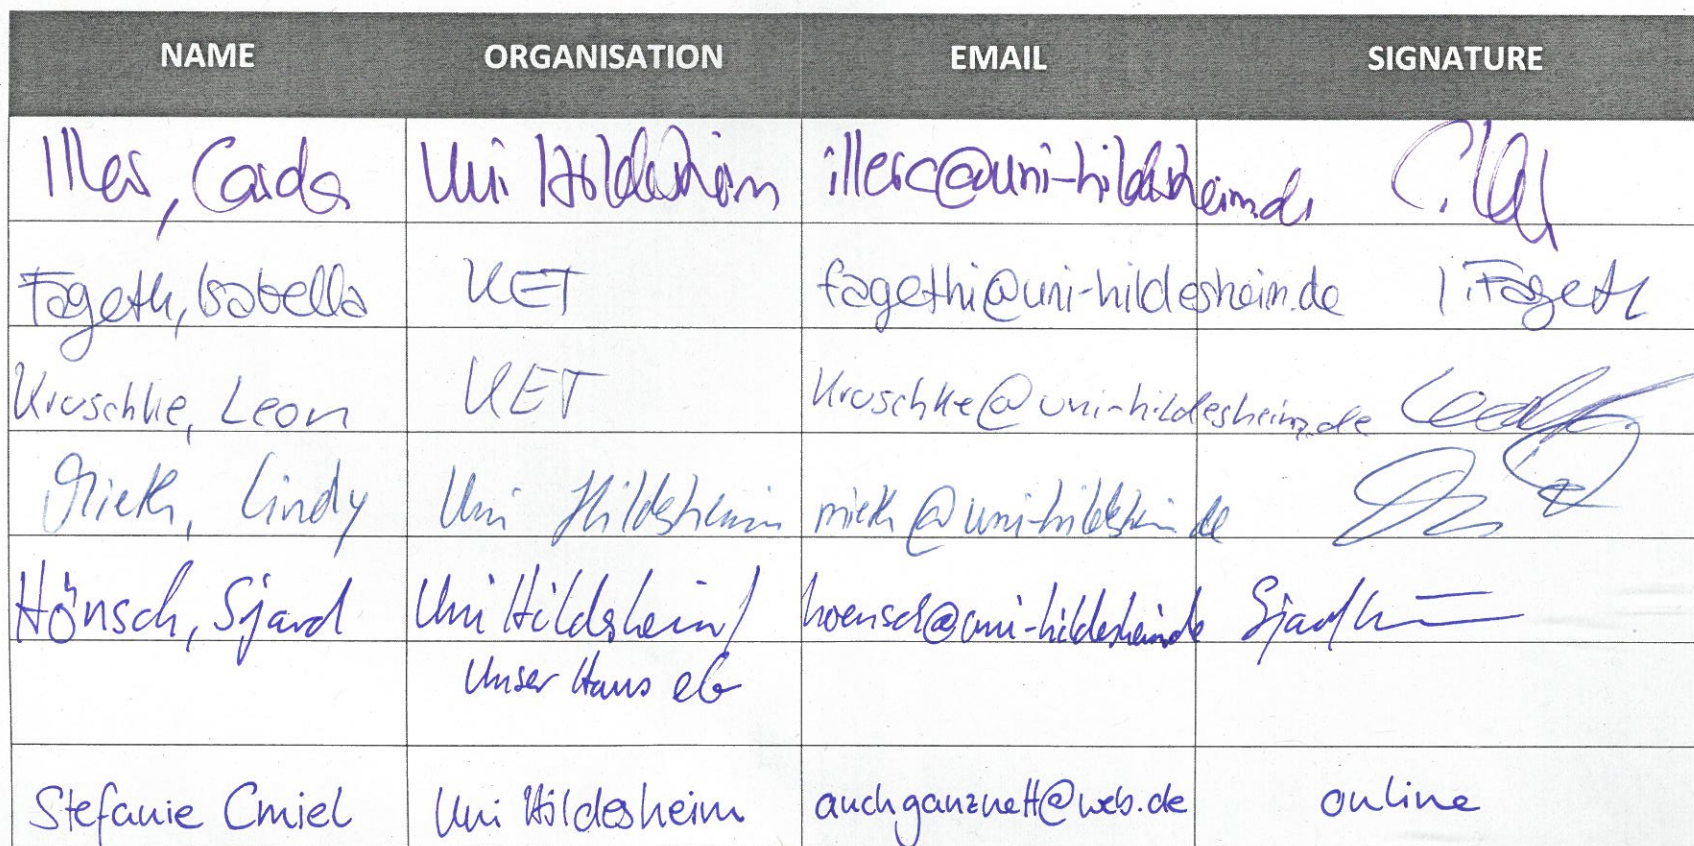 NAME ORGANISATION EMAIL SIGNATURE
Iller, Carola Uni Hildesheim illerc@uni-hildesheim.de C. Iller
Fageth, Isabella KET fagethi@uni-hildesheim.de I. Fageth
Kruschke, Leon KET kruschke@uni-hildesheim.de
Mieth, Lindy Uni Hildesheim mieth@uni-hildesheim.de
Hönsch, Sjard Uni Hildesheim/ hoensch@uni-hildesheim.de Sjard
Unser Haus eG
Stefanie Cmiel Uni Hildesheim auchganznett@web.de online